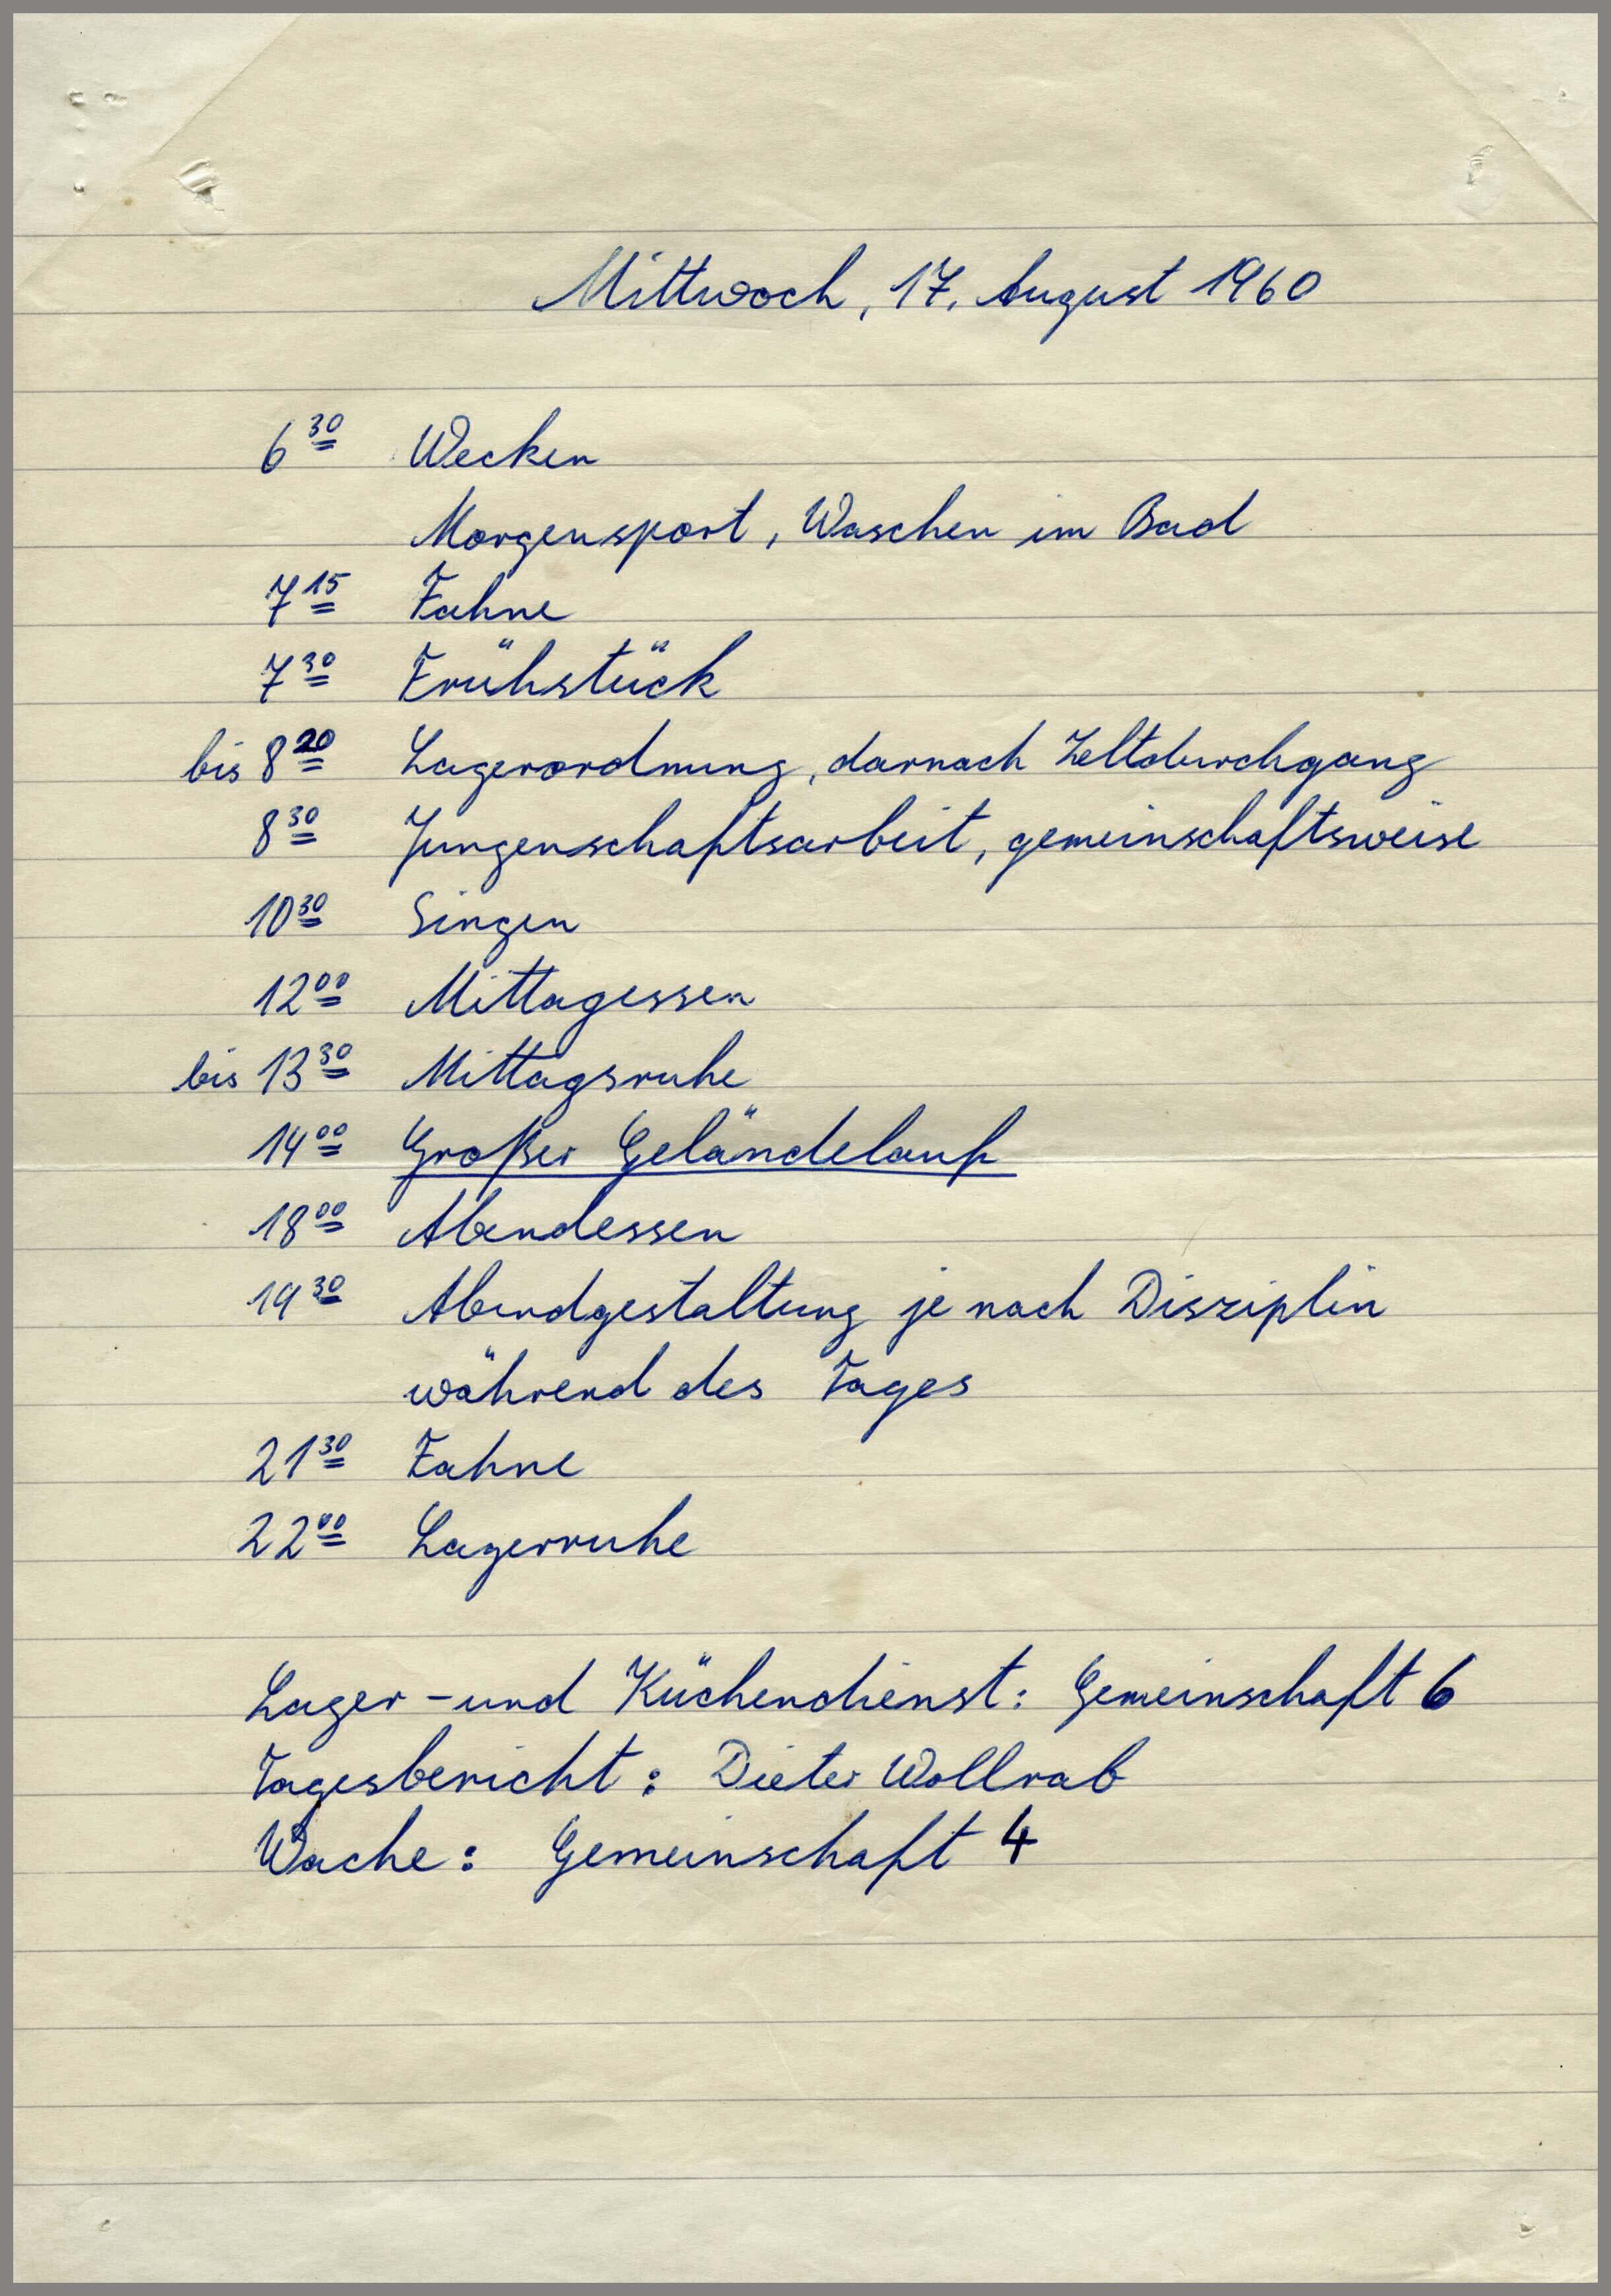 Mittwoch, 17. August 1960
6 30 Wecken
Morgensport, Waschen im Bad
7 15 Fahne
7 30 Frühstück
bis 8 20 Lagerordnung, darnach Zeltdurchgang
8 30 Jungenschaftsarbeit, gemeinschaftsweise
10 30 Singen
12 00 Mittagessen
bis 13 30 Mittagsruhe
14 00 Großer Geländelauf
18 00 Abendessen
19 30 Abendgestaltung je nach Disziplin
während des Tages
21 30 Fahne
22 00 Lagerruhe
Lager- und Küchendienst: Gemeinschaft 6
Tagesbericht: Dieter Wollrab
Wache: Gemeinschaft 4